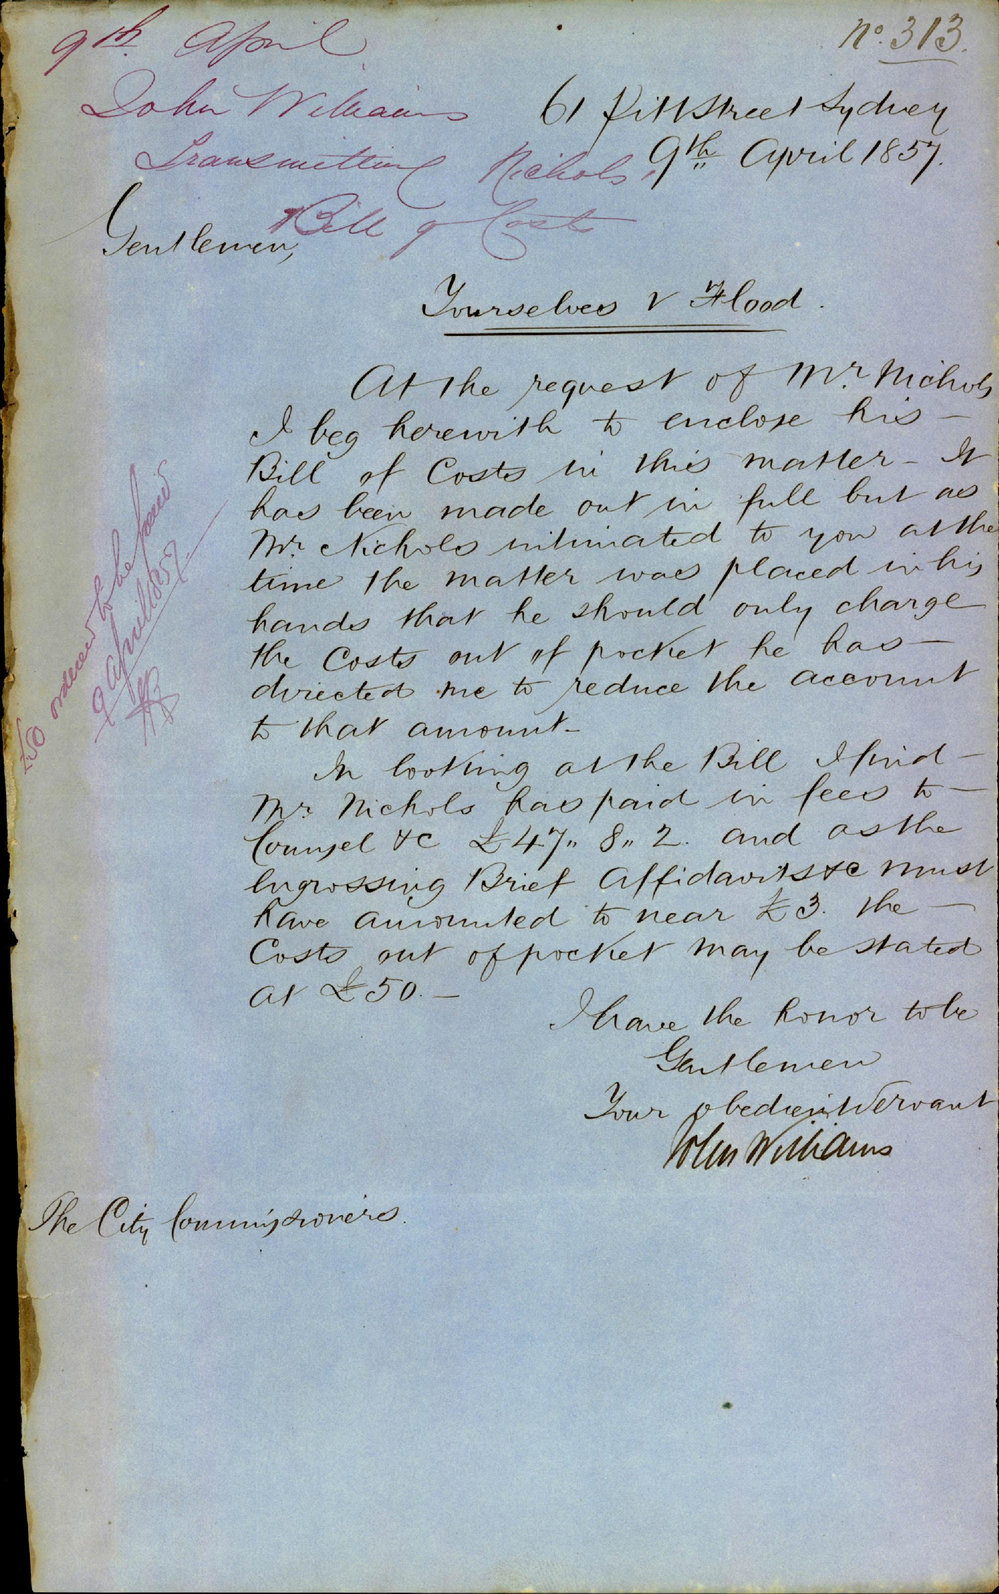 9th April
No. 313.
John Williams
61 Pitt Street Sydney
Transmitting Nichols'
9th April 1857.
Bill of Costs
Gentlemen,
Yourselves v Flood.
At the request of Mr. Nichols
I beg herewith to enclose his -
Bill of Costs in this matter - It
has been made out in full but as
Mr. Nichols intimated to you at the
time the matter was placed in his
hands that he should only charge
the Costs out of pocket he has -
directed me to reduce the account
to that amount -
In looking at the Bill I find -
Mr. Nichols has paid in fees to -
Counsel &c £47,, 8,, 2. and as the
Engrossing Brief Affidavits &c must
have amounted to near £3. the -
Costs out of pocket may be stated
at £50. -
I have the honor to be
Gentlemen
Your obedient Servant
John Williams
The City Commissioners.
£50 ordered to be paid
9 April 1857.